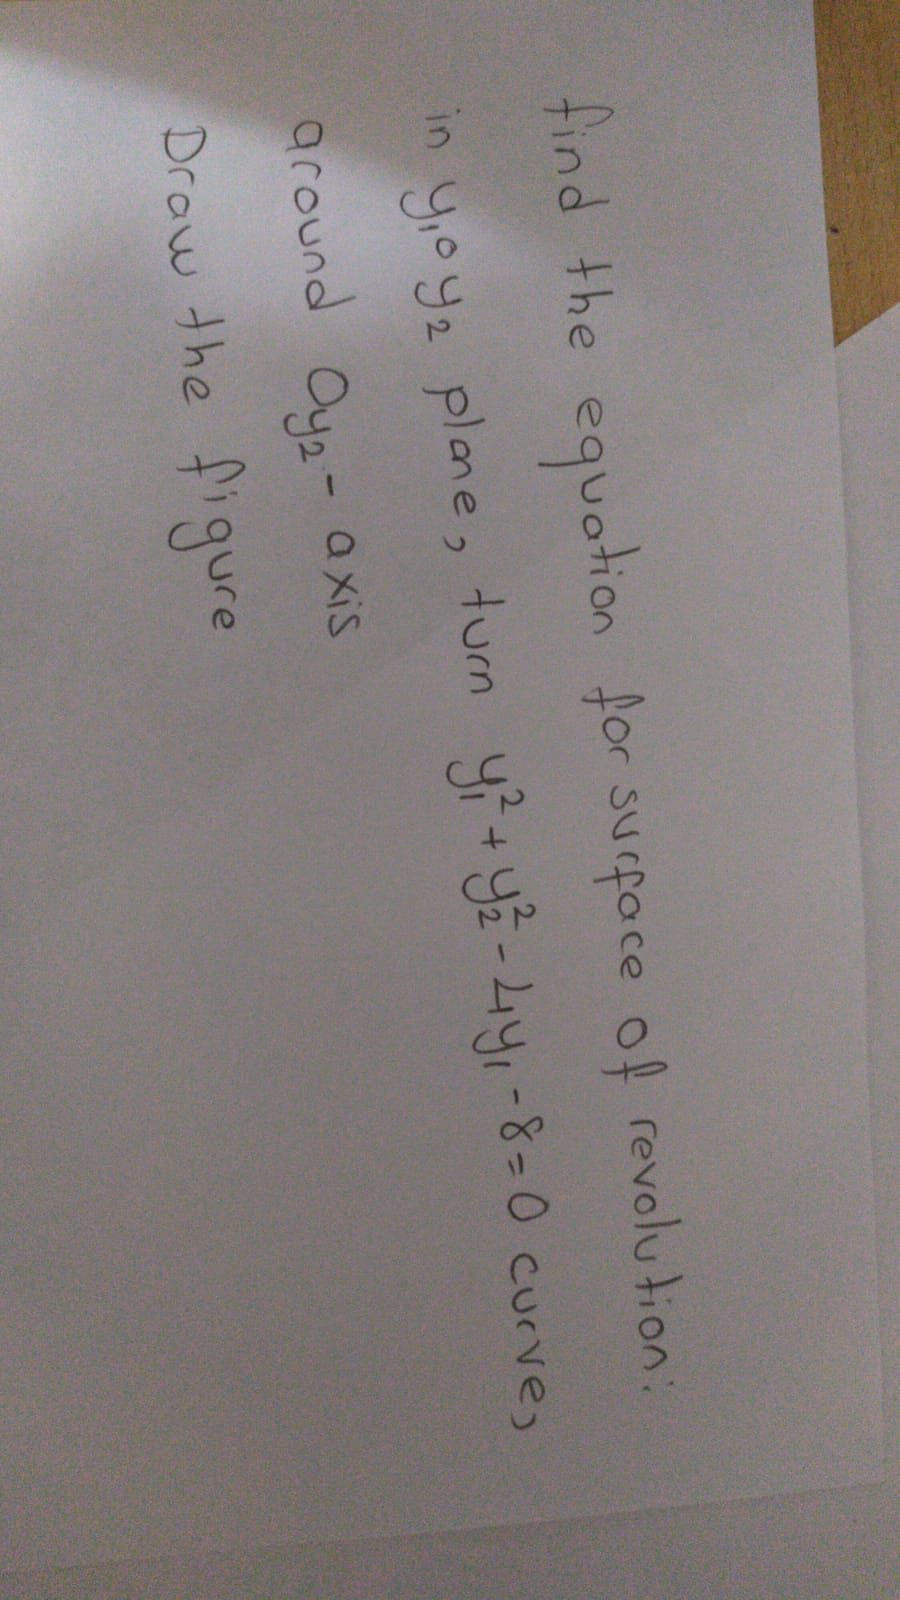 find the equation for surface of revolution:
in y₁oy₂ plane, turn y₁²+y₂²-4y₁-8=0 curve,
around Oy₂-axis
Draw the figure